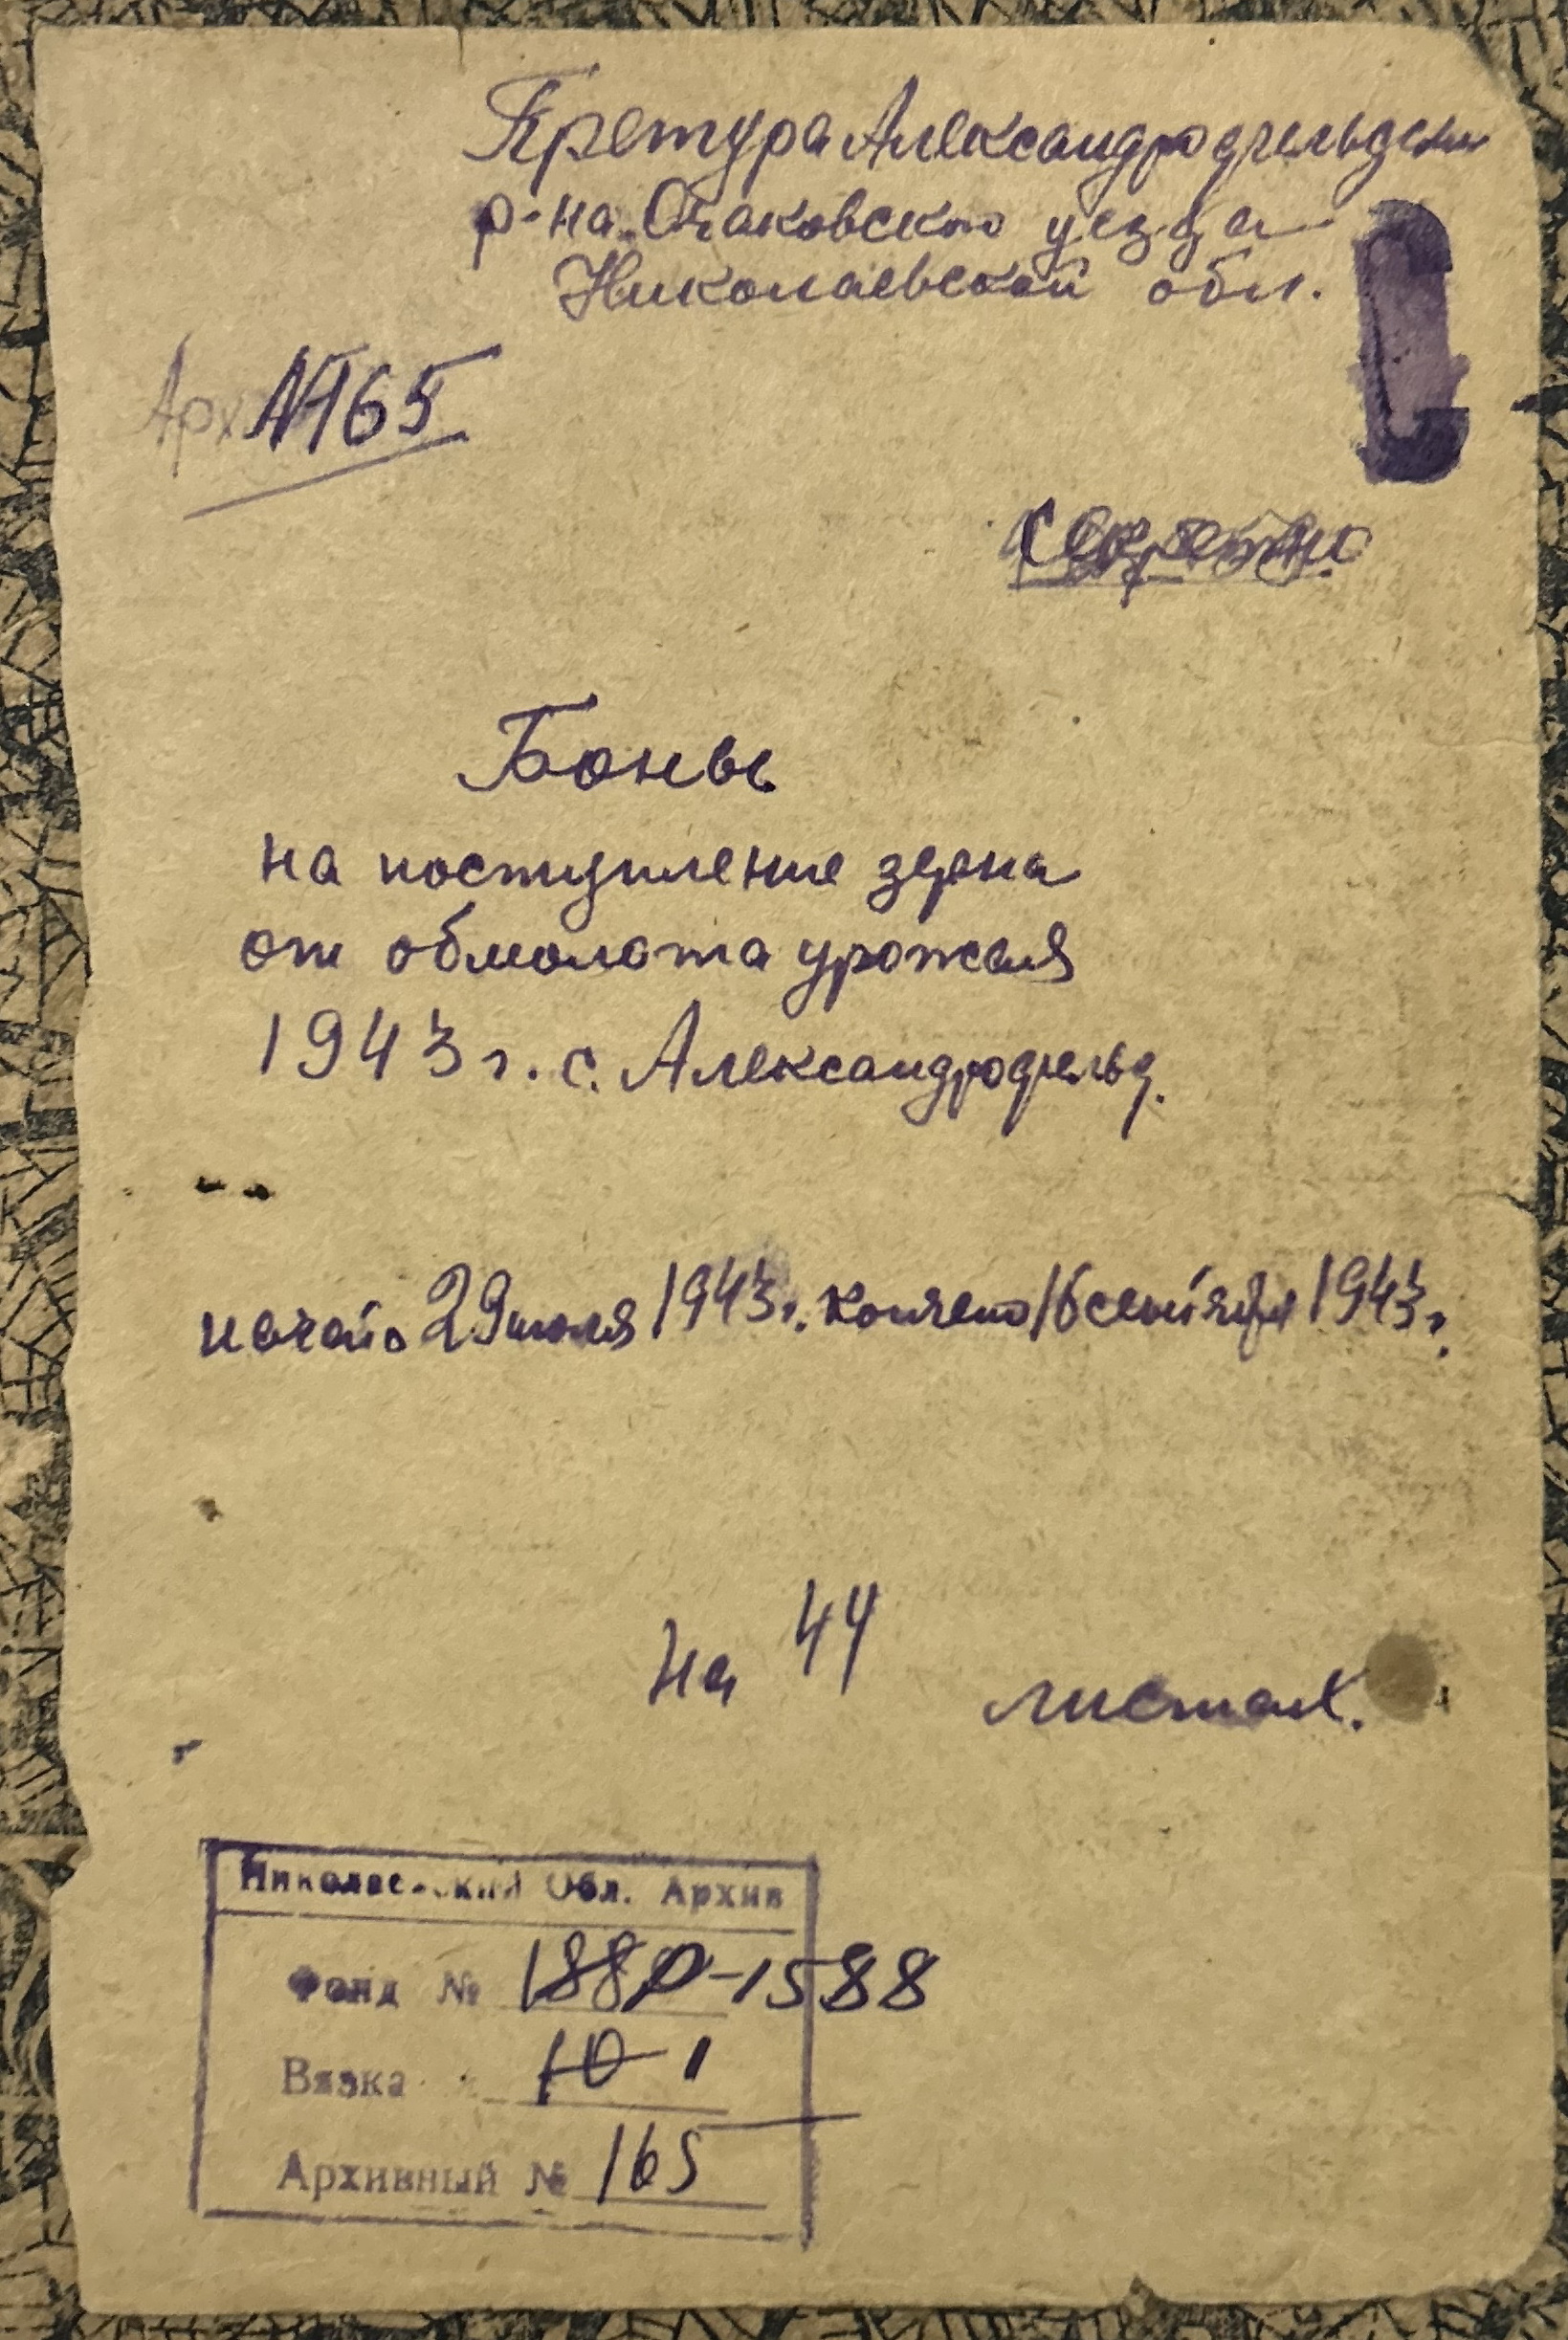 Претура Александрофельдск
р-на Очаковского уезда
Николаевской обл.
Арх №165
секретно
Боны
на поступление зерна
от обмолота урожая
1943 г. с. Александрофельд.
29 июля 1943 г. 16 сентября 1943 г.
На 44 листах.
Николаевский Обл. Архив
Фонд № 1880-1588
Вязка 10 1
Архивный № 165